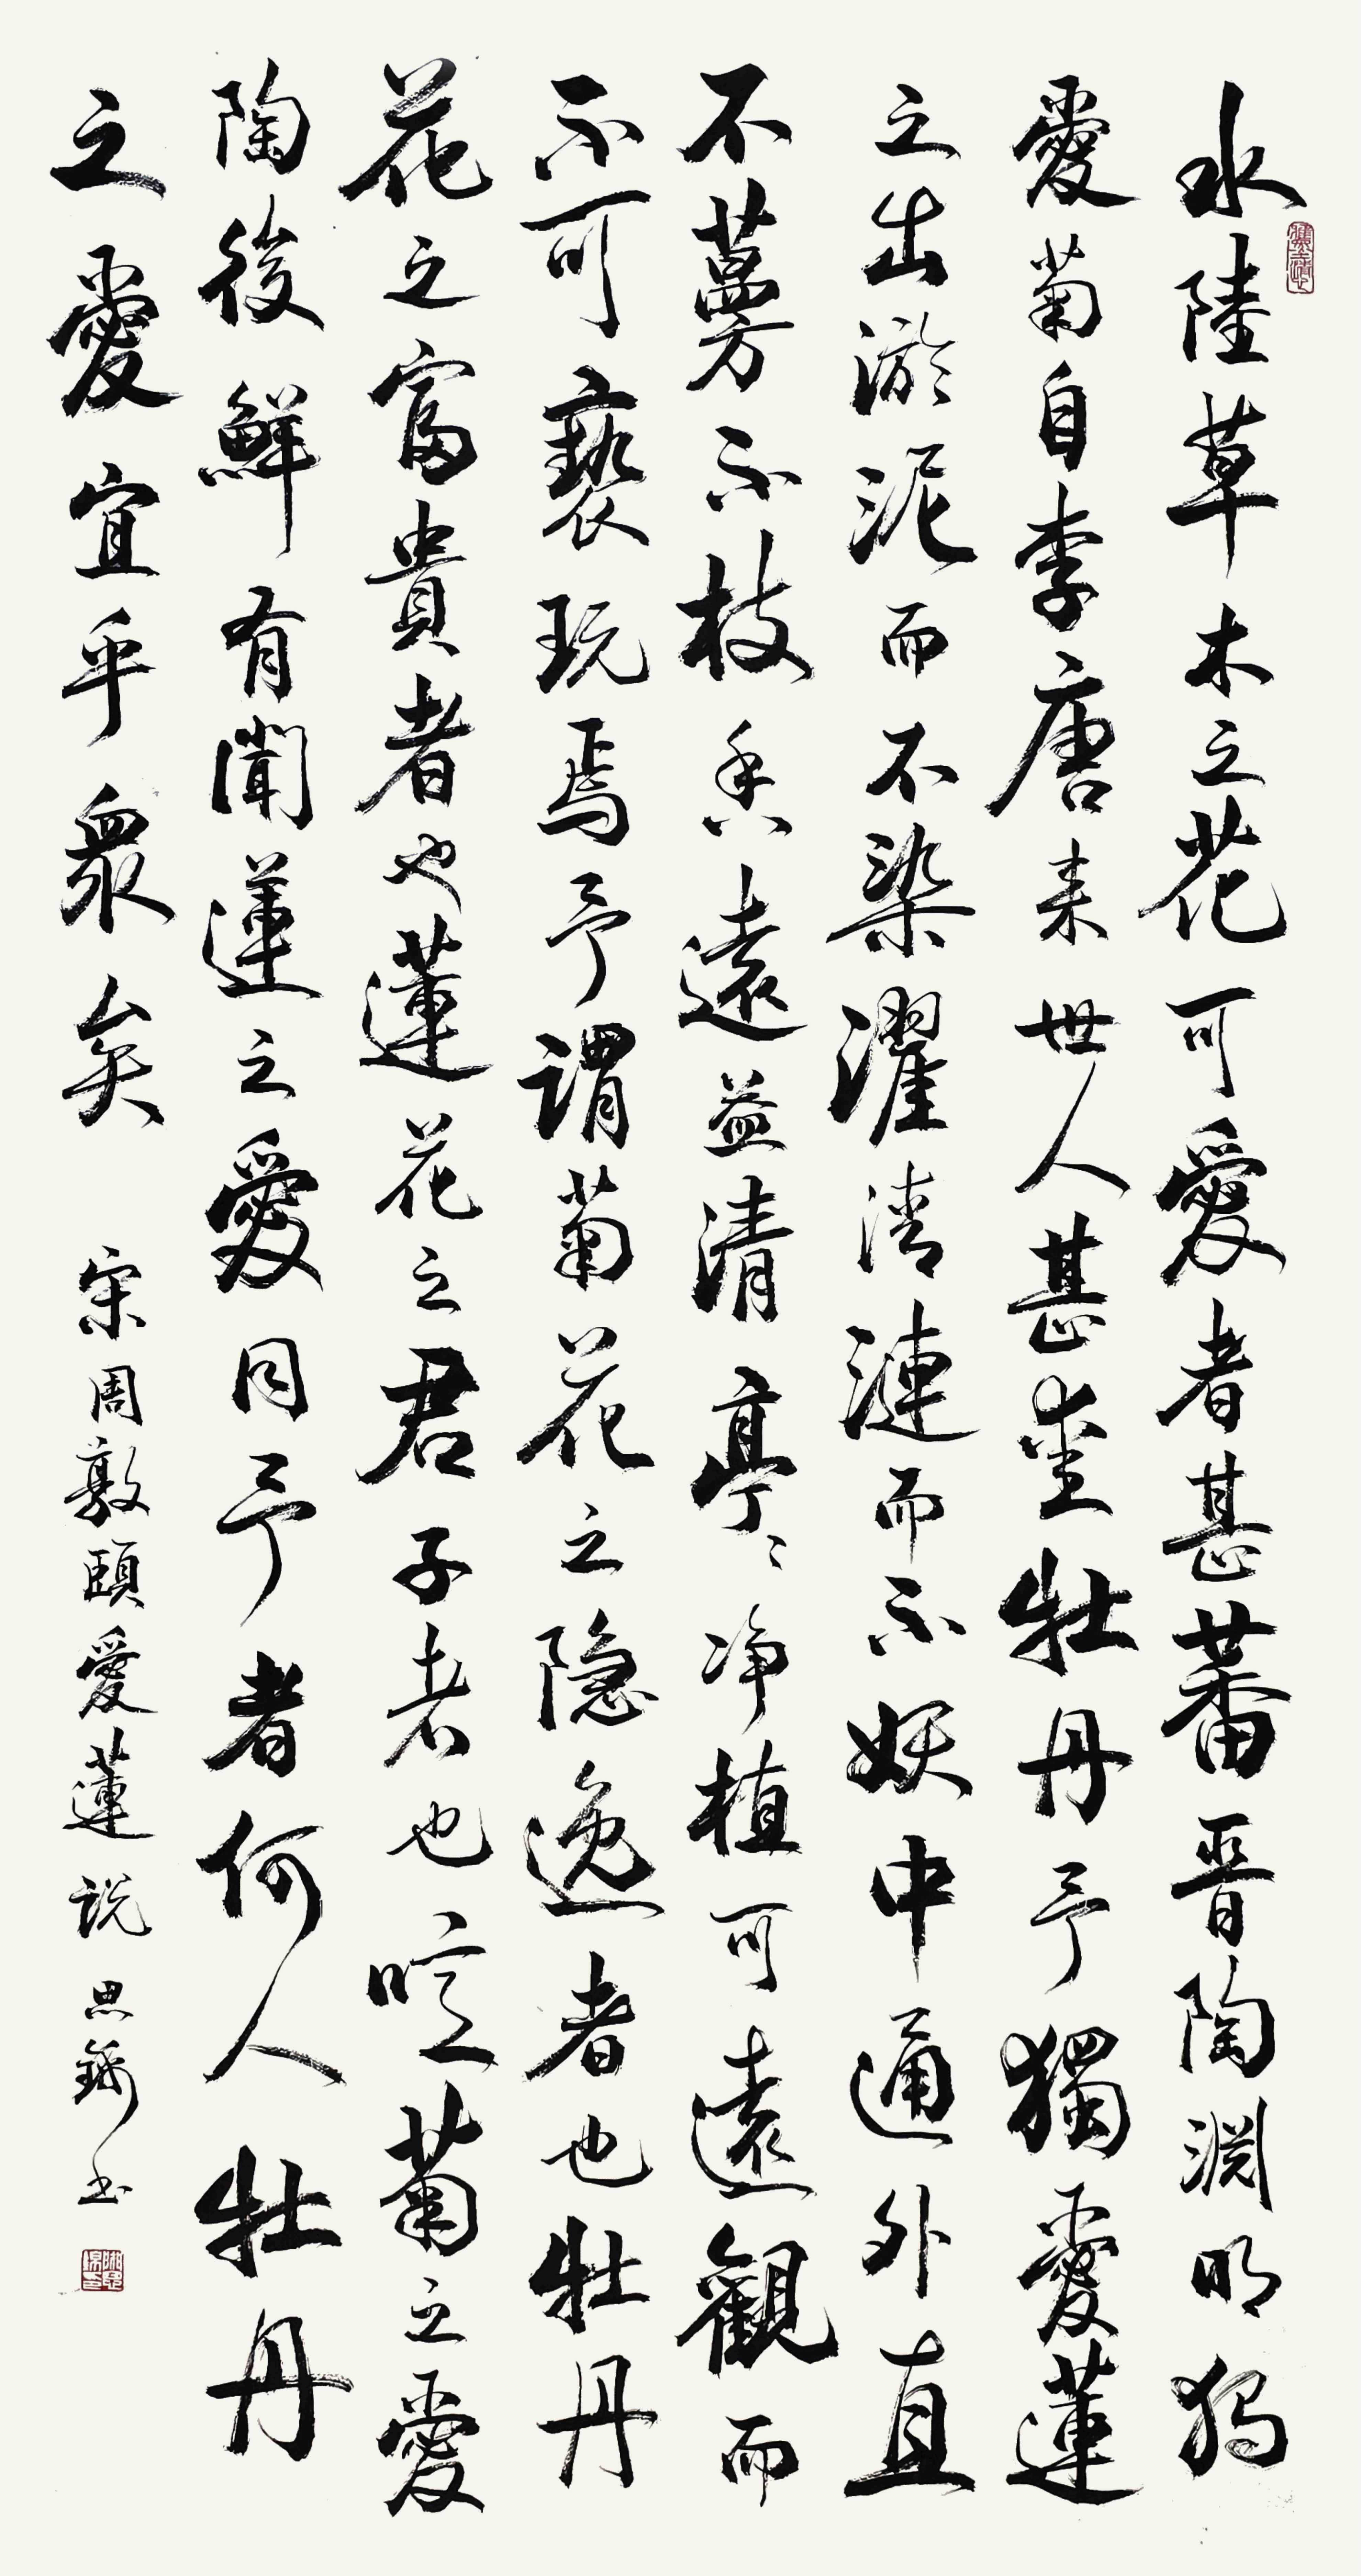 水陸草木之花可愛者甚蕃晋陶淵明独
愛菊自李唐来世人甚愛牡丹予獨愛蓮
之出淤泥而不染濯清漣而不妖中通外直
不蔓不枝香遠益清亭〻净植可遠觀而
不可褻玩焉予謂菊花之隐逸者也牡丹
花之富貴者也蓮花之君子者也噫菊之愛
陶後鮮有聞蓮之愛同予者何人牡丹
之愛宜乎衆矣 宋周敦頤愛蓮説 思錦书